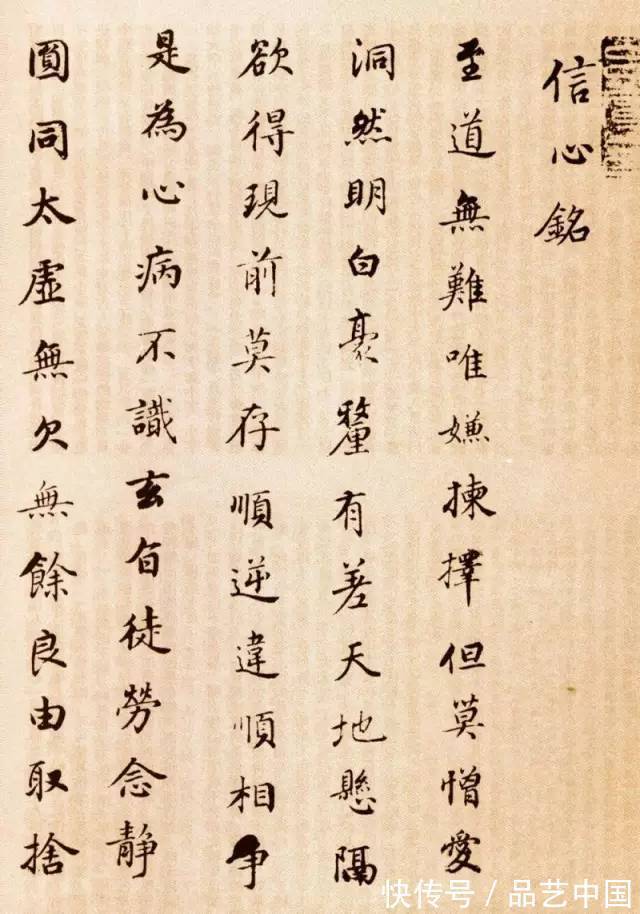 信心銘
至道無難唯嫌揀擇但莫憎愛
洞然明白豪釐有差天地懸隔
欲得現前莫存順逆違順相爭
是為心病不識玄旨徒勞念静
圓同太虛無欠無餘良由取捨
快传号 / 品艺中国